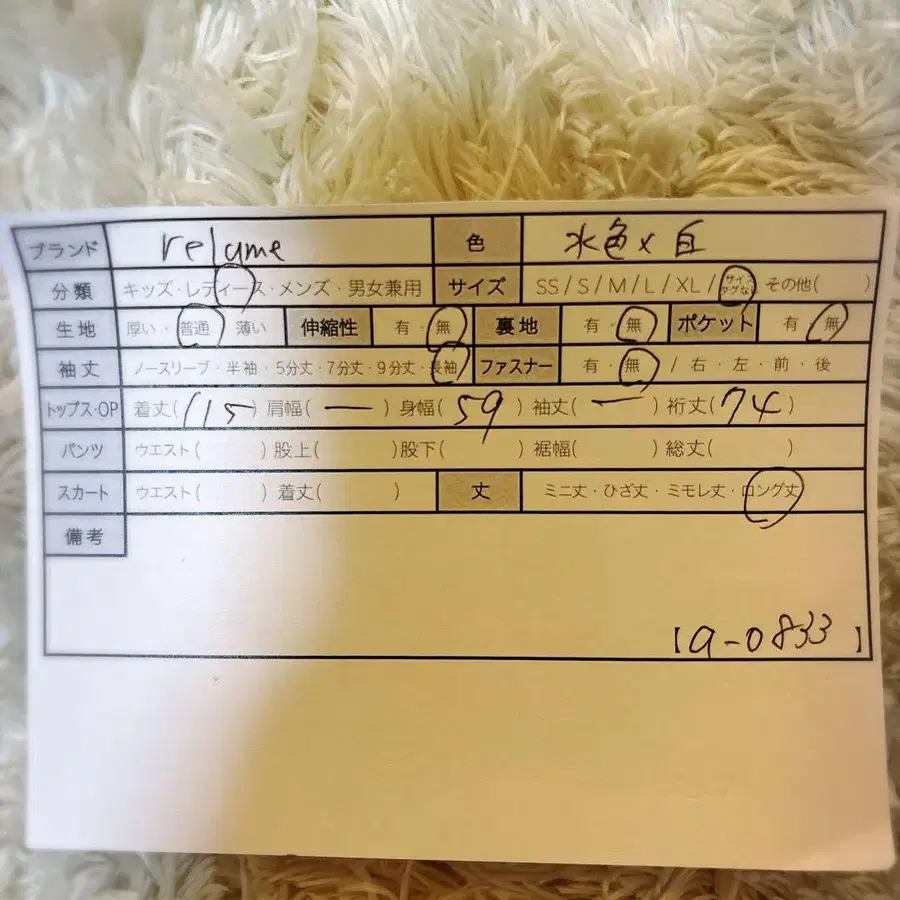 ブランド relume 色 水色×白
分類 キッズ・レディース・メンズ・男女兼用 サイズ SS/S/M/L/XL/サイズタグなし その他( )
生地 厚い・普通・薄い 伸縮性 有・無 裏地 有・無 ポケット 有・無
袖丈 ノースリーブ・半袖・5分丈・7分丈・9分丈・長袖 ファスナー 有・無 / 右・左・前・後
トップス・OP 着丈(115) 肩幅(ー) 身幅(59) 袖丈(ー) 裄丈(74)
パンツ ウエスト( ) 股上( ) 股下( ) 裾幅( ) 総丈( )
スカート ウエスト( ) 着丈( ) 丈 ミニ丈・ひざ丈・ミモレ丈・ロング丈
備考
【a-0833】